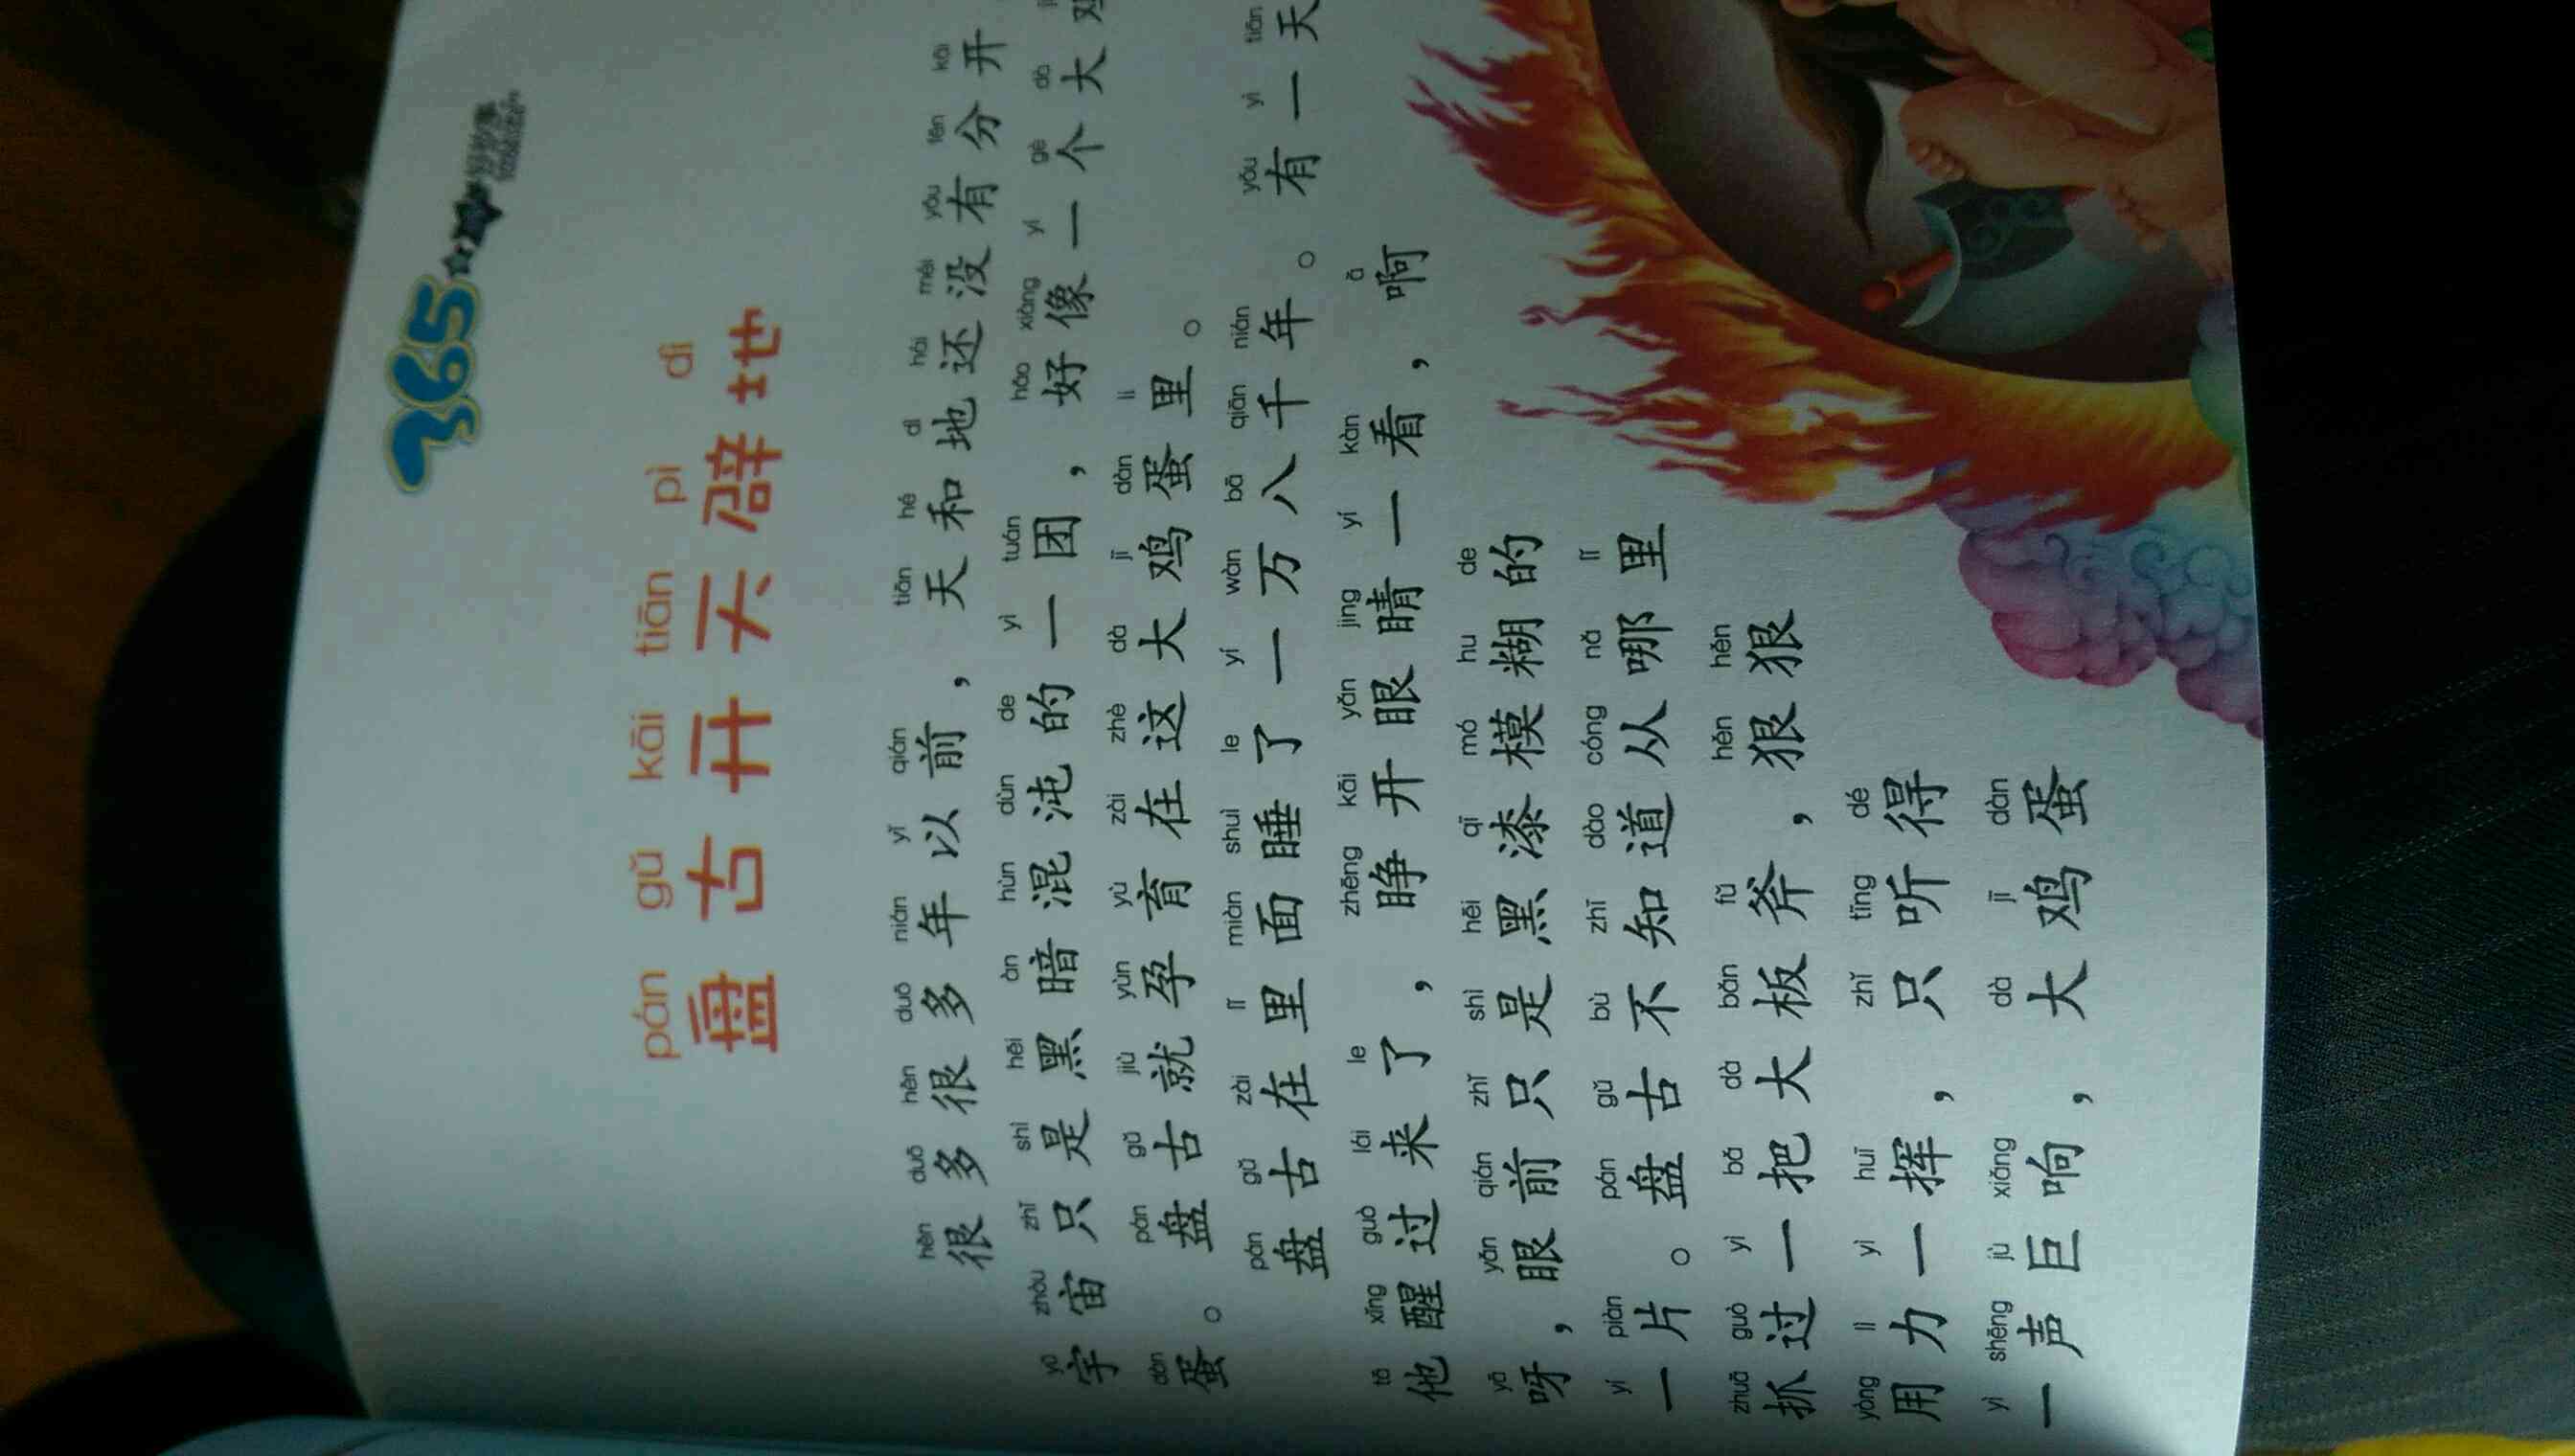 365
pán gǔ kāi tiān pì dì
盘古开天辟地
hěn duō hěn duō nián yǐ qián tiān hé dì hái méi yǒu fēn kāi
很多很多年以前，天和地还没有分开
yǔ zhòu zhǐ shì hēi àn hùn dùn de yì tuán hǎo xiàng yí gè dà
宇宙只是黑暗混沌的一团，好像一个大鸡
dàn pán gǔ jiù yùn yù zài zhè dà jī dàn lǐ
蛋。盘古就孕育在这大鸡蛋里。
pán gǔ zài lǐ miàn shuì le yí wàn bā qiān nián yǒu yì tiān
盘古在里面睡了一万八千年。有一天
tā xǐng guò lái le zhēng kāi yǎn jing yí kàn ā
他醒过来了，睁开眼睛一看，啊
yā yǎn qián zhǐ shì hēi qī mó hu de
呀，眼前只是黑漆模糊的
yí piàn pán gǔ bù zhī dào cóng nǎ lǐ
一片。盘古不知道从哪里
zhuā guò yì bǎ dà bǎn fǔ hěn hěn
抓过一把大板斧，狠狠
yòng lì yì huī zhǐ tīng dé
用力一挥，只听得
yì shēng jù xiǎng dà jī dàn
一声巨响，大鸡蛋